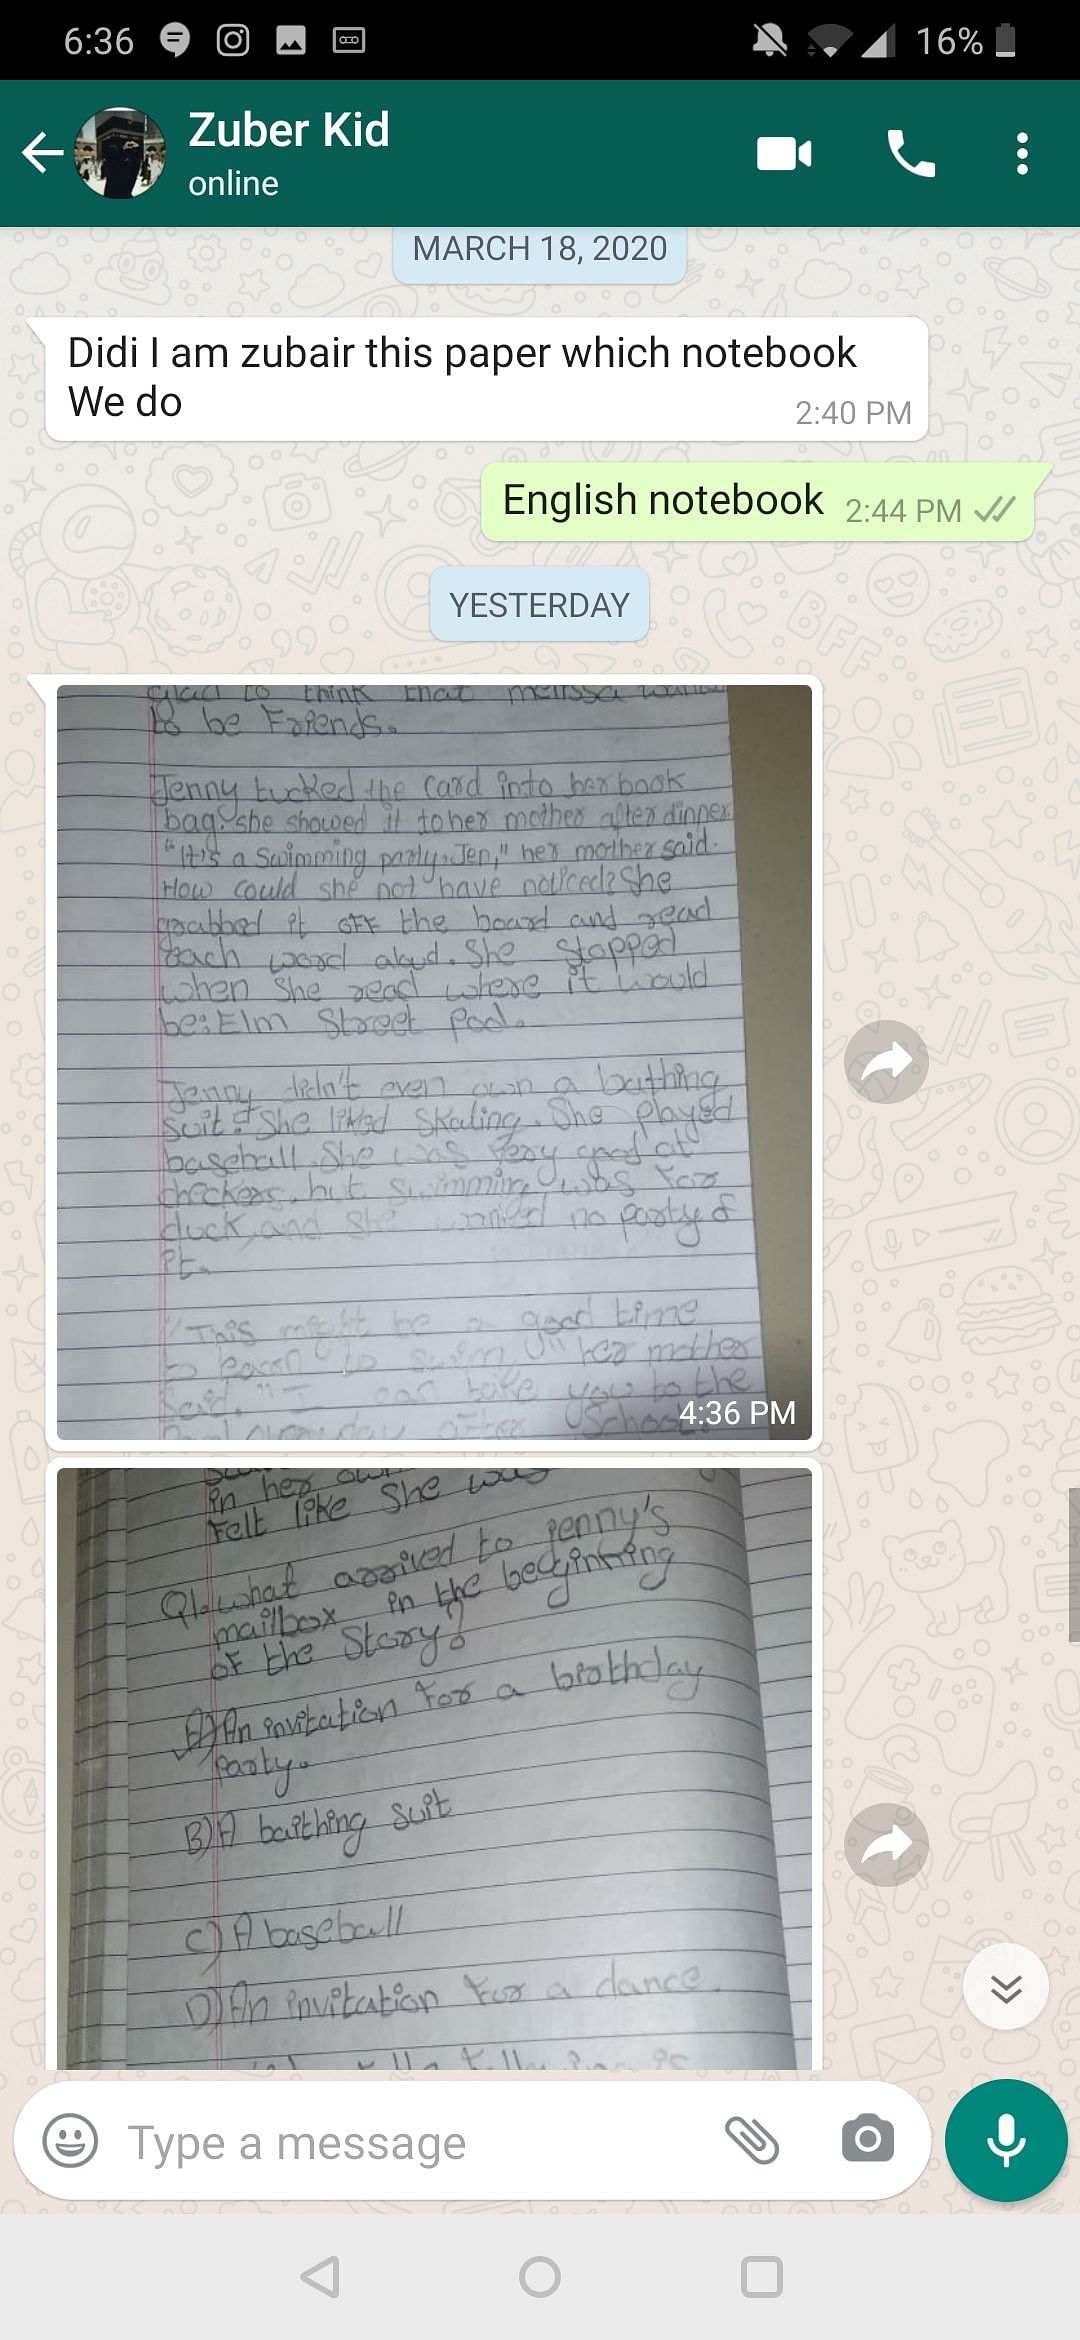 6:36
16%
Zuber Kid
online
MARCH 18, 2020
Didi I am zubair this paper which notebook
We do
2:40 PM
English notebook 2:44 PM
YESTERDAY
glad to think that melissa
to be Friends.
Jenny tucked the card into her book
bag. she showed it to her mother after dinner.
"It's a Swimming party. Jen," her mother said.
How could she not have noticed? She
grabbed it off the board and read
each word aloud. She stopped
when She read where it would
be: Elm Street Pool.
Jenny didn't even own a bathing
suit. She liked Skating. She played
baseball. She was very good at
checkers. but Swimming was for
duck, and she wanted no party of
it.
"This might be a good time
to swim," her mother
said. "I can take you to the
day after School
4:36 PM
in her own
Felt like She was
Q1. what arrived to jenny's
mailbox in the beginning
of the Story?
A) An invitation for a birthday
party.
B) A baithing Suit
C) A baseball
D) An invitation for a dance.
Type a message